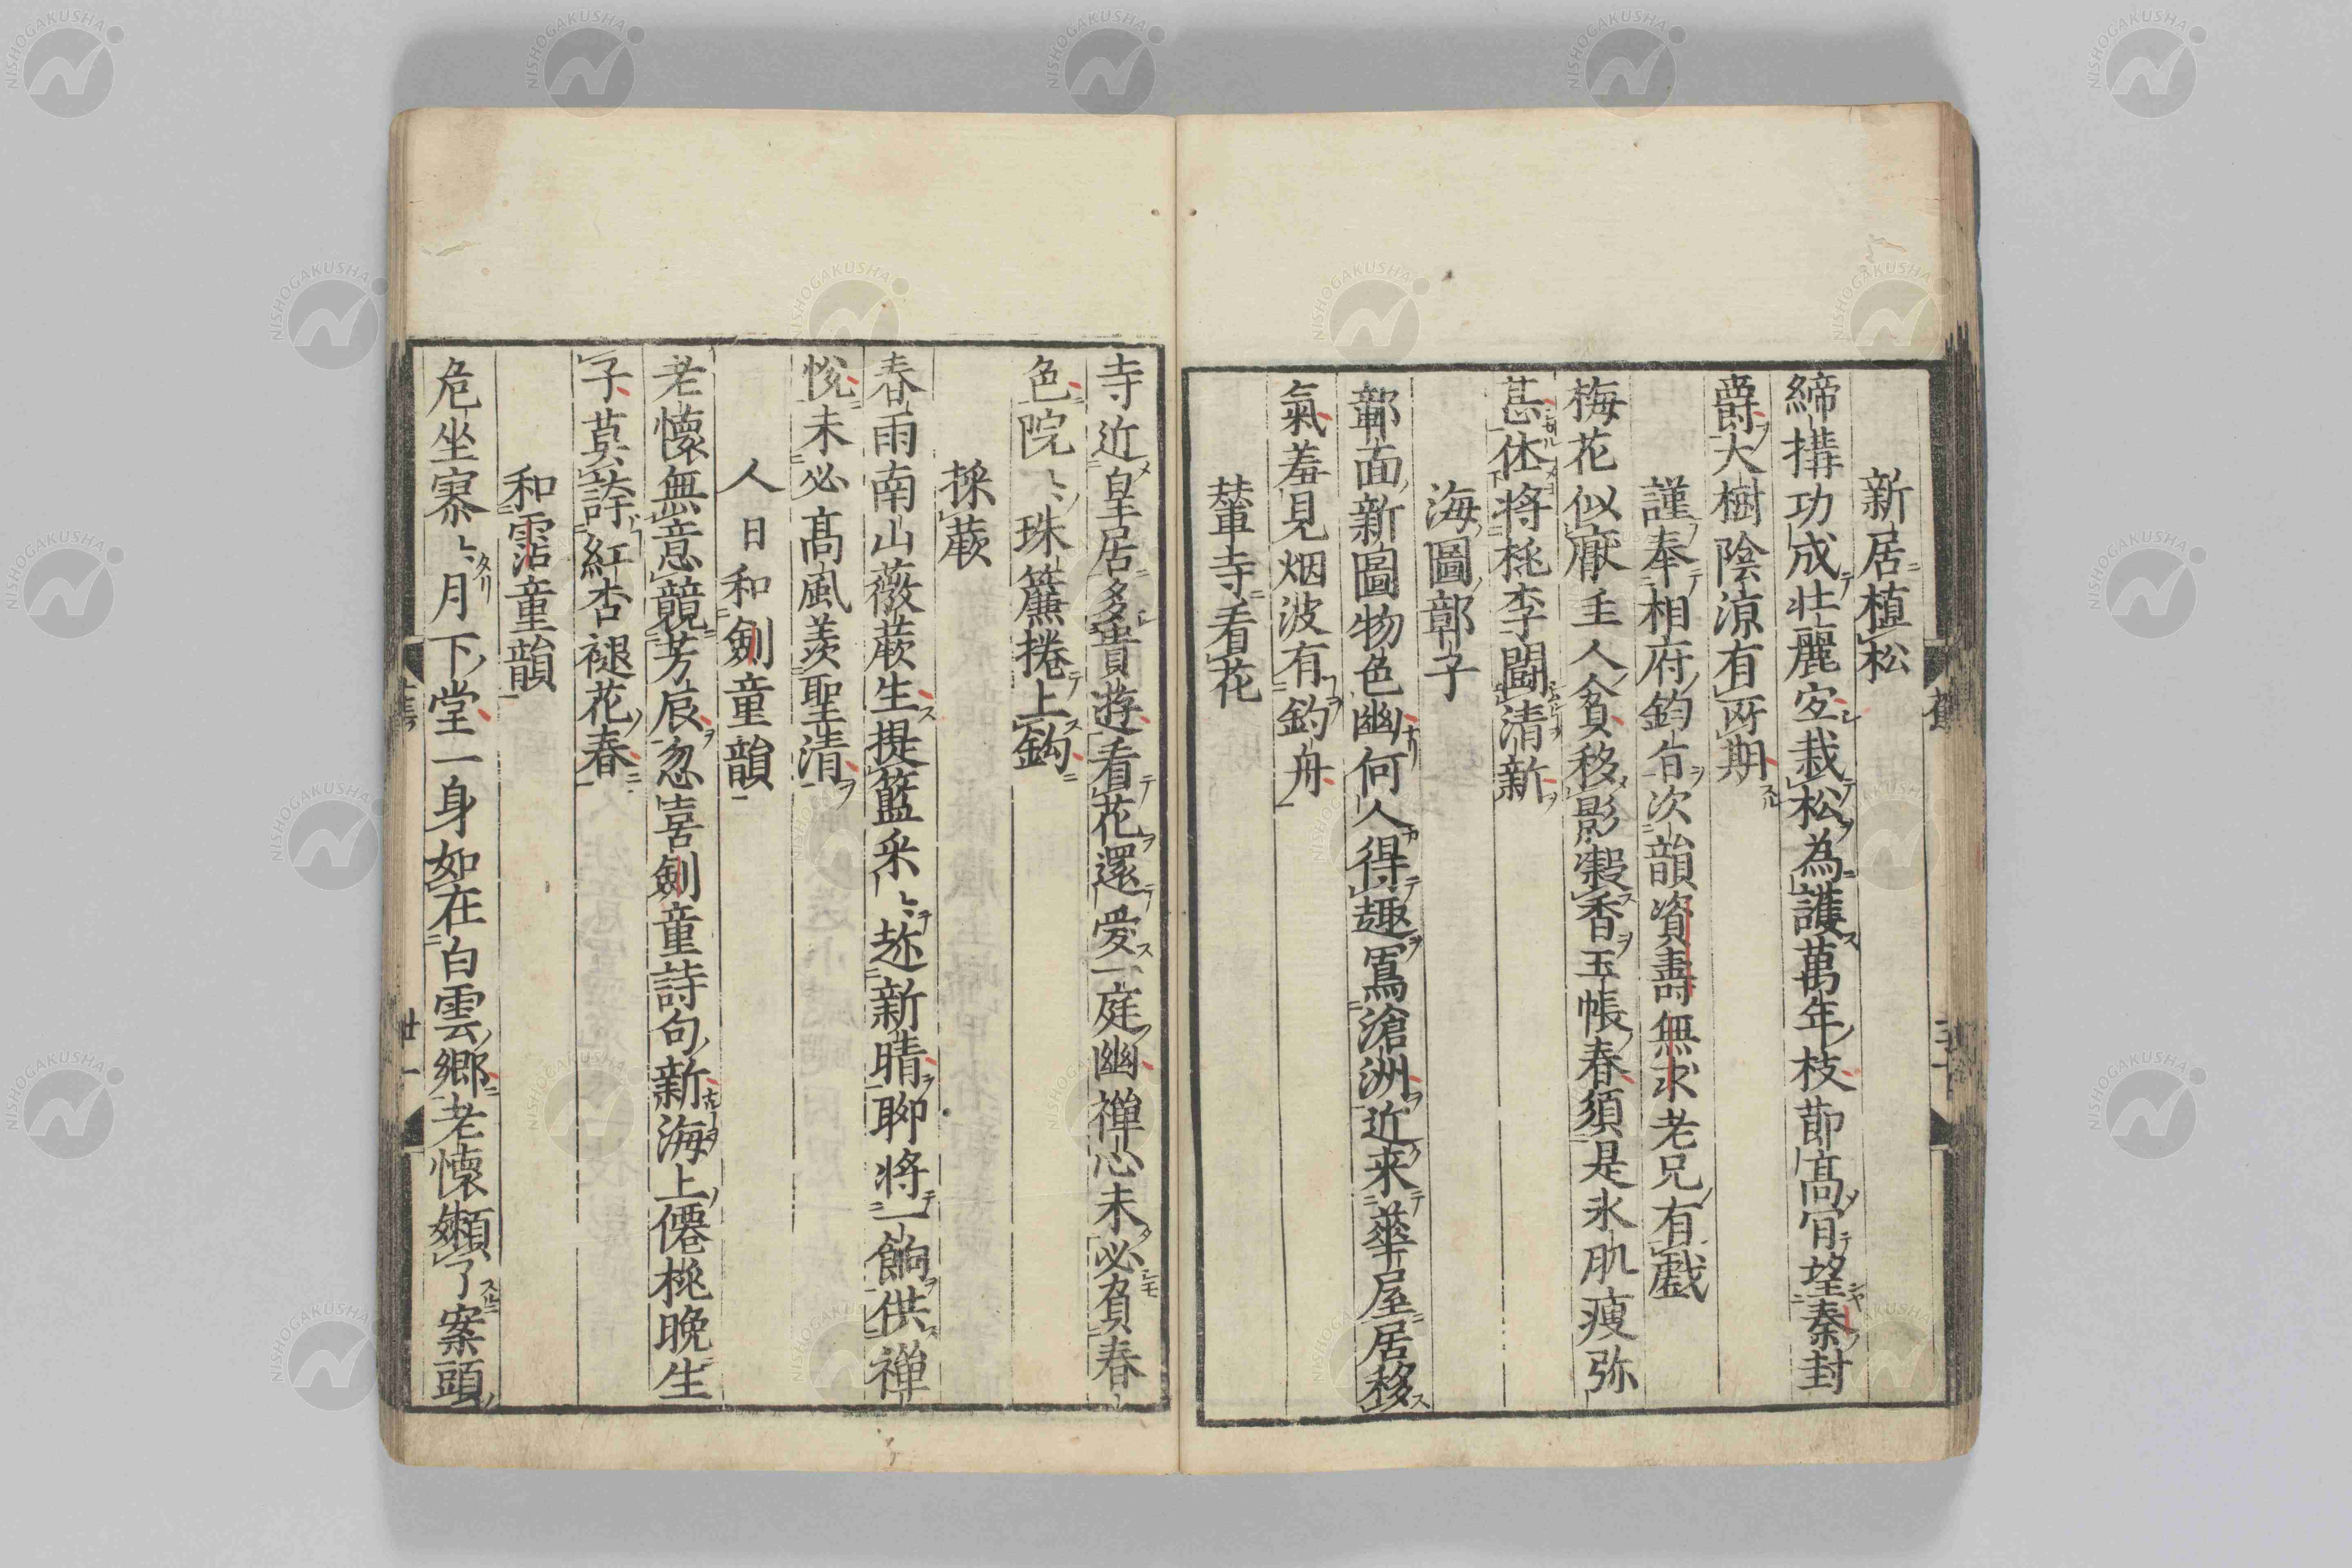 新居植松
締搆功成壮麗宏栽松為護萬年枝節高肎望秦封
爵大樹陰涼有所期
謹奉相府鈞旨次韻資壽無求老兄有戯
梅花似厭主人貧移影潔香玉帳春須是氷肌瘦弥
甚休将桃李鬪清新
海圖鄣子
鄣面新圖物色幽何人得趣寫滄洲近来華屋居移
氣羞見烟波有釣舟
輦寺看花
寺近皇居多貴遊看花還愛一庭幽禅心未必負春
色院々珠簾捲上鈎
採蕨
春雨南山薇蕨生提籃采々趂新晴聊将一餉供禅
悅未必髙風羨聖清
人日和劍童韻
老懷無意競芳辰忽喜劍童詩句新海上僊桃晚生
子莫誇紅杏褪花春
和霑童韻
危坐寥々月下堂一身如在白雲郷老懷嬾了案頭